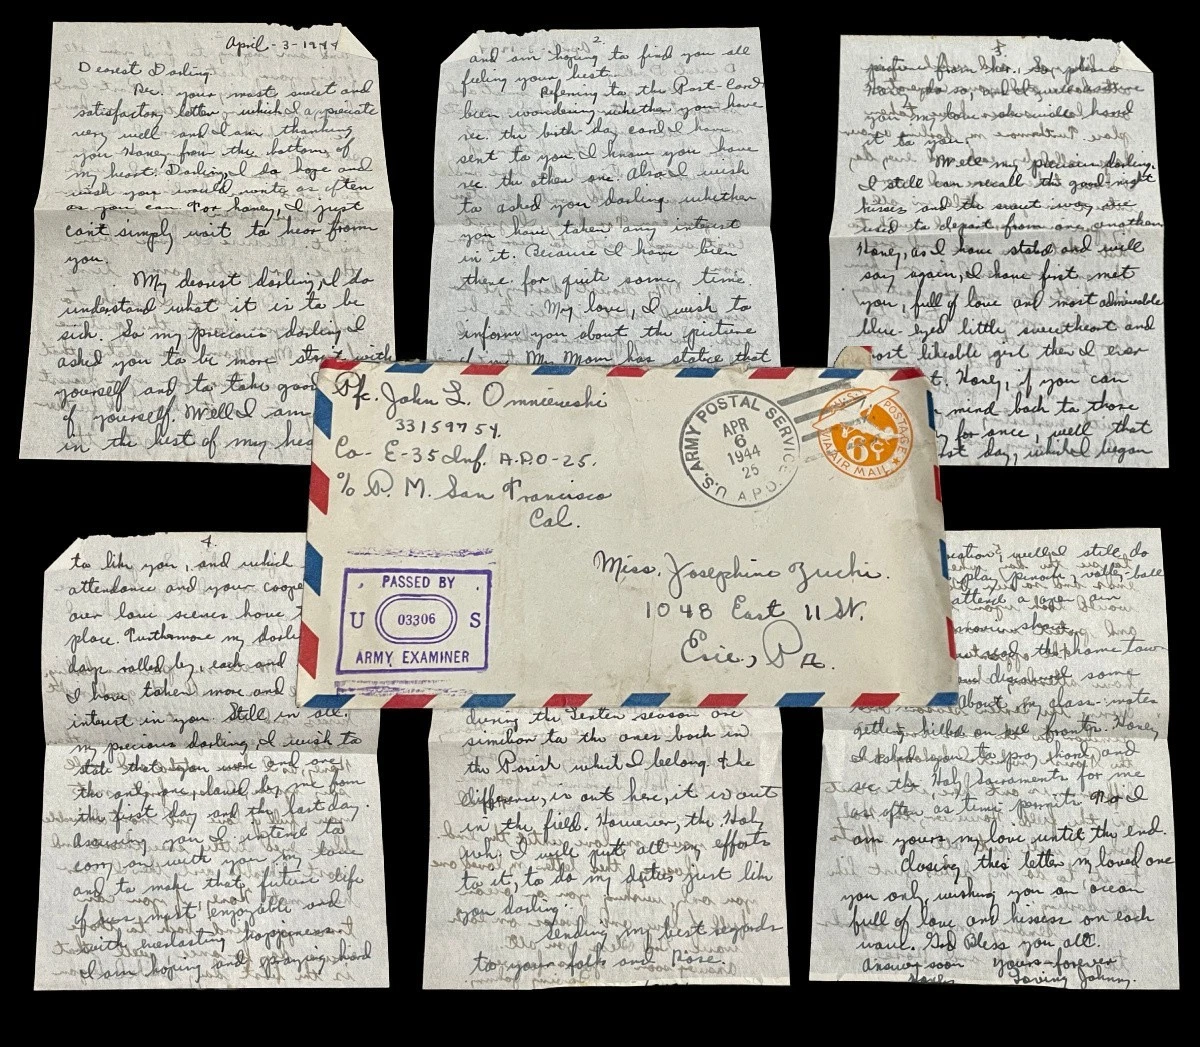 April - 3 - 1944
Dearest Darling.
Rec. your most sweet and
satisfactory letter which I appreciate
very well and I am thanking
you Honey from the bottom of
my heart. Darling, I do hope and
wish you would write as often
as you can For honey, I just
can't simply wait to hear from
you.
My dearest darling, I do
understand what it is to be
sick. So my precious darling I
asked you to be more with
yourself and to take good
of yourself. Well I am
in the best of my
2.
and am hoping to find you all
feeling your best.
Refering to the Post-Card
been wondering whether you have
rec. the birth-day card I have
sent to you I know you have
rec. the other one. Also I wish
to asked you darling whether
you have taken any interest
in it. Because I have been
there for quite some time.
My love, I wish to
inform you about the picture
My Mom has stated that
3
from Her. So,
do so, and I
you my
it to you.
Well my precious darling.
I still can recall the good-night
kisses and the sweet way we
used to depart from one another
Honey, as I have stated and will
say again, I have first met
you, full of love and most admireable
blue-eyed little sweetheart and
most likeable girl then I ever
Honey, if you can
mind back to those
for once, well that
day, which I began
Pfc. John L. Omniewski
33159754.
Co- E-35 Inf. A.P.O-25.
c/o P. M. San Francisco
Cal.
U.S. ARMY POSTAL SERVICE
APR
6
1944
25
A.P.O.
U.S. POSTAGE
6¢
VIA AIR MAIL
PASSED BY
U 03306 S
ARMY EXAMINER
Miss. Josephine Zuchi.
1048 East 11 St.
Erie, Pa.
4.
to like you, and which
attendance and your
love scenes have
place. Furthermore my
days rolled by, each and
I have taken more and
interest in you. Still in all.
my precious darling, I wish to
state that you were and are
the only one, from
the first day and the last day.
Assuring you I intend to
carry on with you my
and to make that future life
of ours most enjoyable and
with everlasting happiness.
I am hoping and praying hard
during the Lenten season are
similiar to the ones back in
the Parish which I belong. The
difference, is out here, it is out
in the field. However, the Holy
I will put all my efforts
to it, to do my duties just like
you darling.
Sending my best regards
to your folks and Rose.
well I still do
play volley-ball
attend a open air
show
the home town
and some
About my class-mates
getting killed on front. Honey
I asked you to pray hard and
rec the Holy Sacraments for me
as often as time permits For I
am yours my love until the end.
Closing this letter my loved one
you only, wishing you an ocean
full of love and kissess on each
wave. God Bless you all.
Answer soon yours-forever
Honey Loving Johnny.